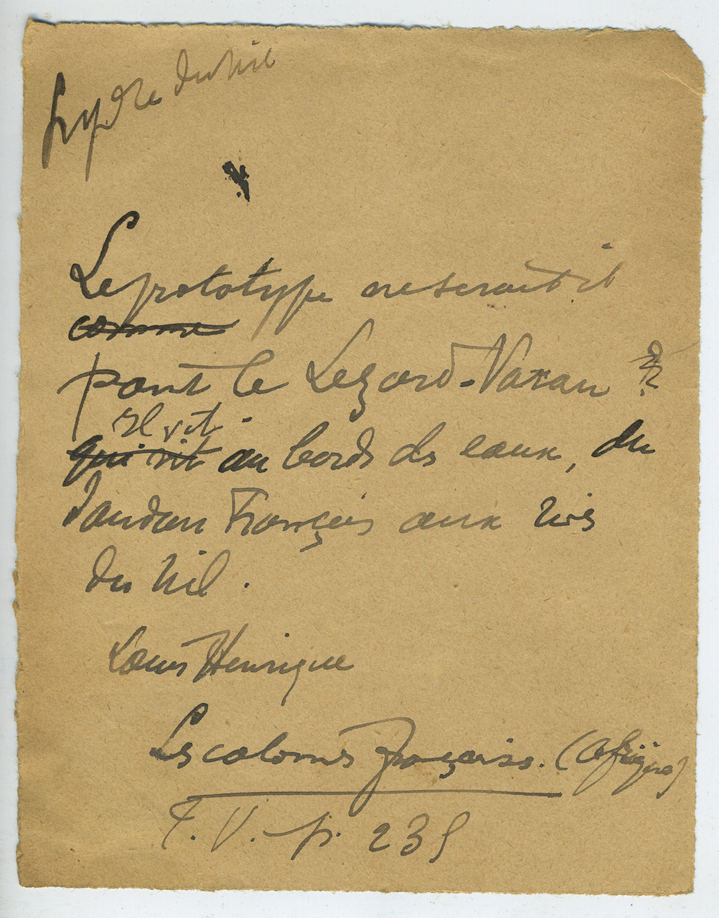 hydre du Nil
Le prototype ne serait il
comme
point le Lezard-Varan ?
Il vit
qui vit au bords des eaux, du
Soudan Français aux rives
du Nil.
Louis Henrique
Les colonies françaises. (Afrique)
T. V. p. 235